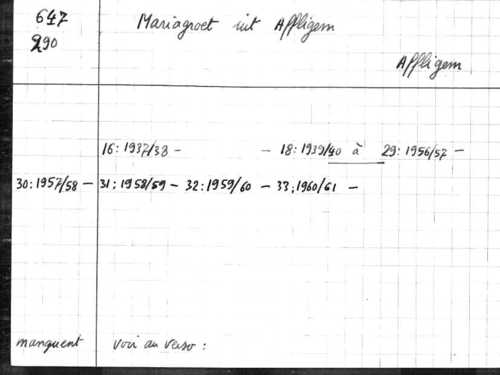 647 Mariagroet uit Affligem
290
Affligem
16: 1937/38 - - 18: 1939/40 à 29: 1956/57 -
30: 1957/58 - 31: 1958/59 - 32: 1959/60 - 33: 1960/61 -
manquent voir au verso :